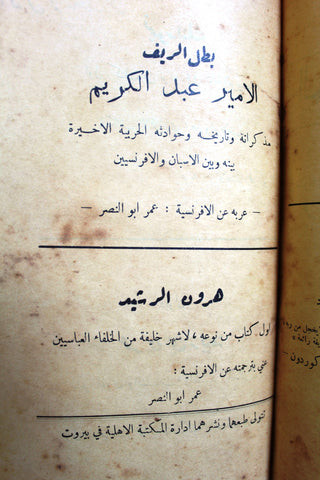 بطل الريف
الامير عبد الكريم
مذكراته وتاريخه وحوادثه الحربية الاخيرة
بينه وبين الاسبان والافرنسيين
— عربه عن الافرنسية : عمر ابو النصر —
هرون الرشيد
اول كتاب من نوعه ، لاشهر خليفة من الخلفاء العباسيين
عني بترجمته عن الافرنسية :
عمر ابو النصر
تتولى طبعهما ونشرهما ادارة المكتبة الاهلية في بيروت
كوردون —